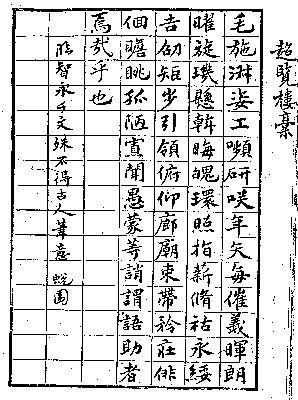 超覽樓稾
毛施淑姿工嚬研咲年矢每催羲暉朗
曜旋璣懸斡晦魄環照指薪脩祜永綏
吉劭矩步引領俯仰廊廟束帶矜莊俳
佪瞻眺孤陋寡聞愚蒙等誚謂語助者
焉哉乎也
臨智永千文殊不得古人筆意 蛻園